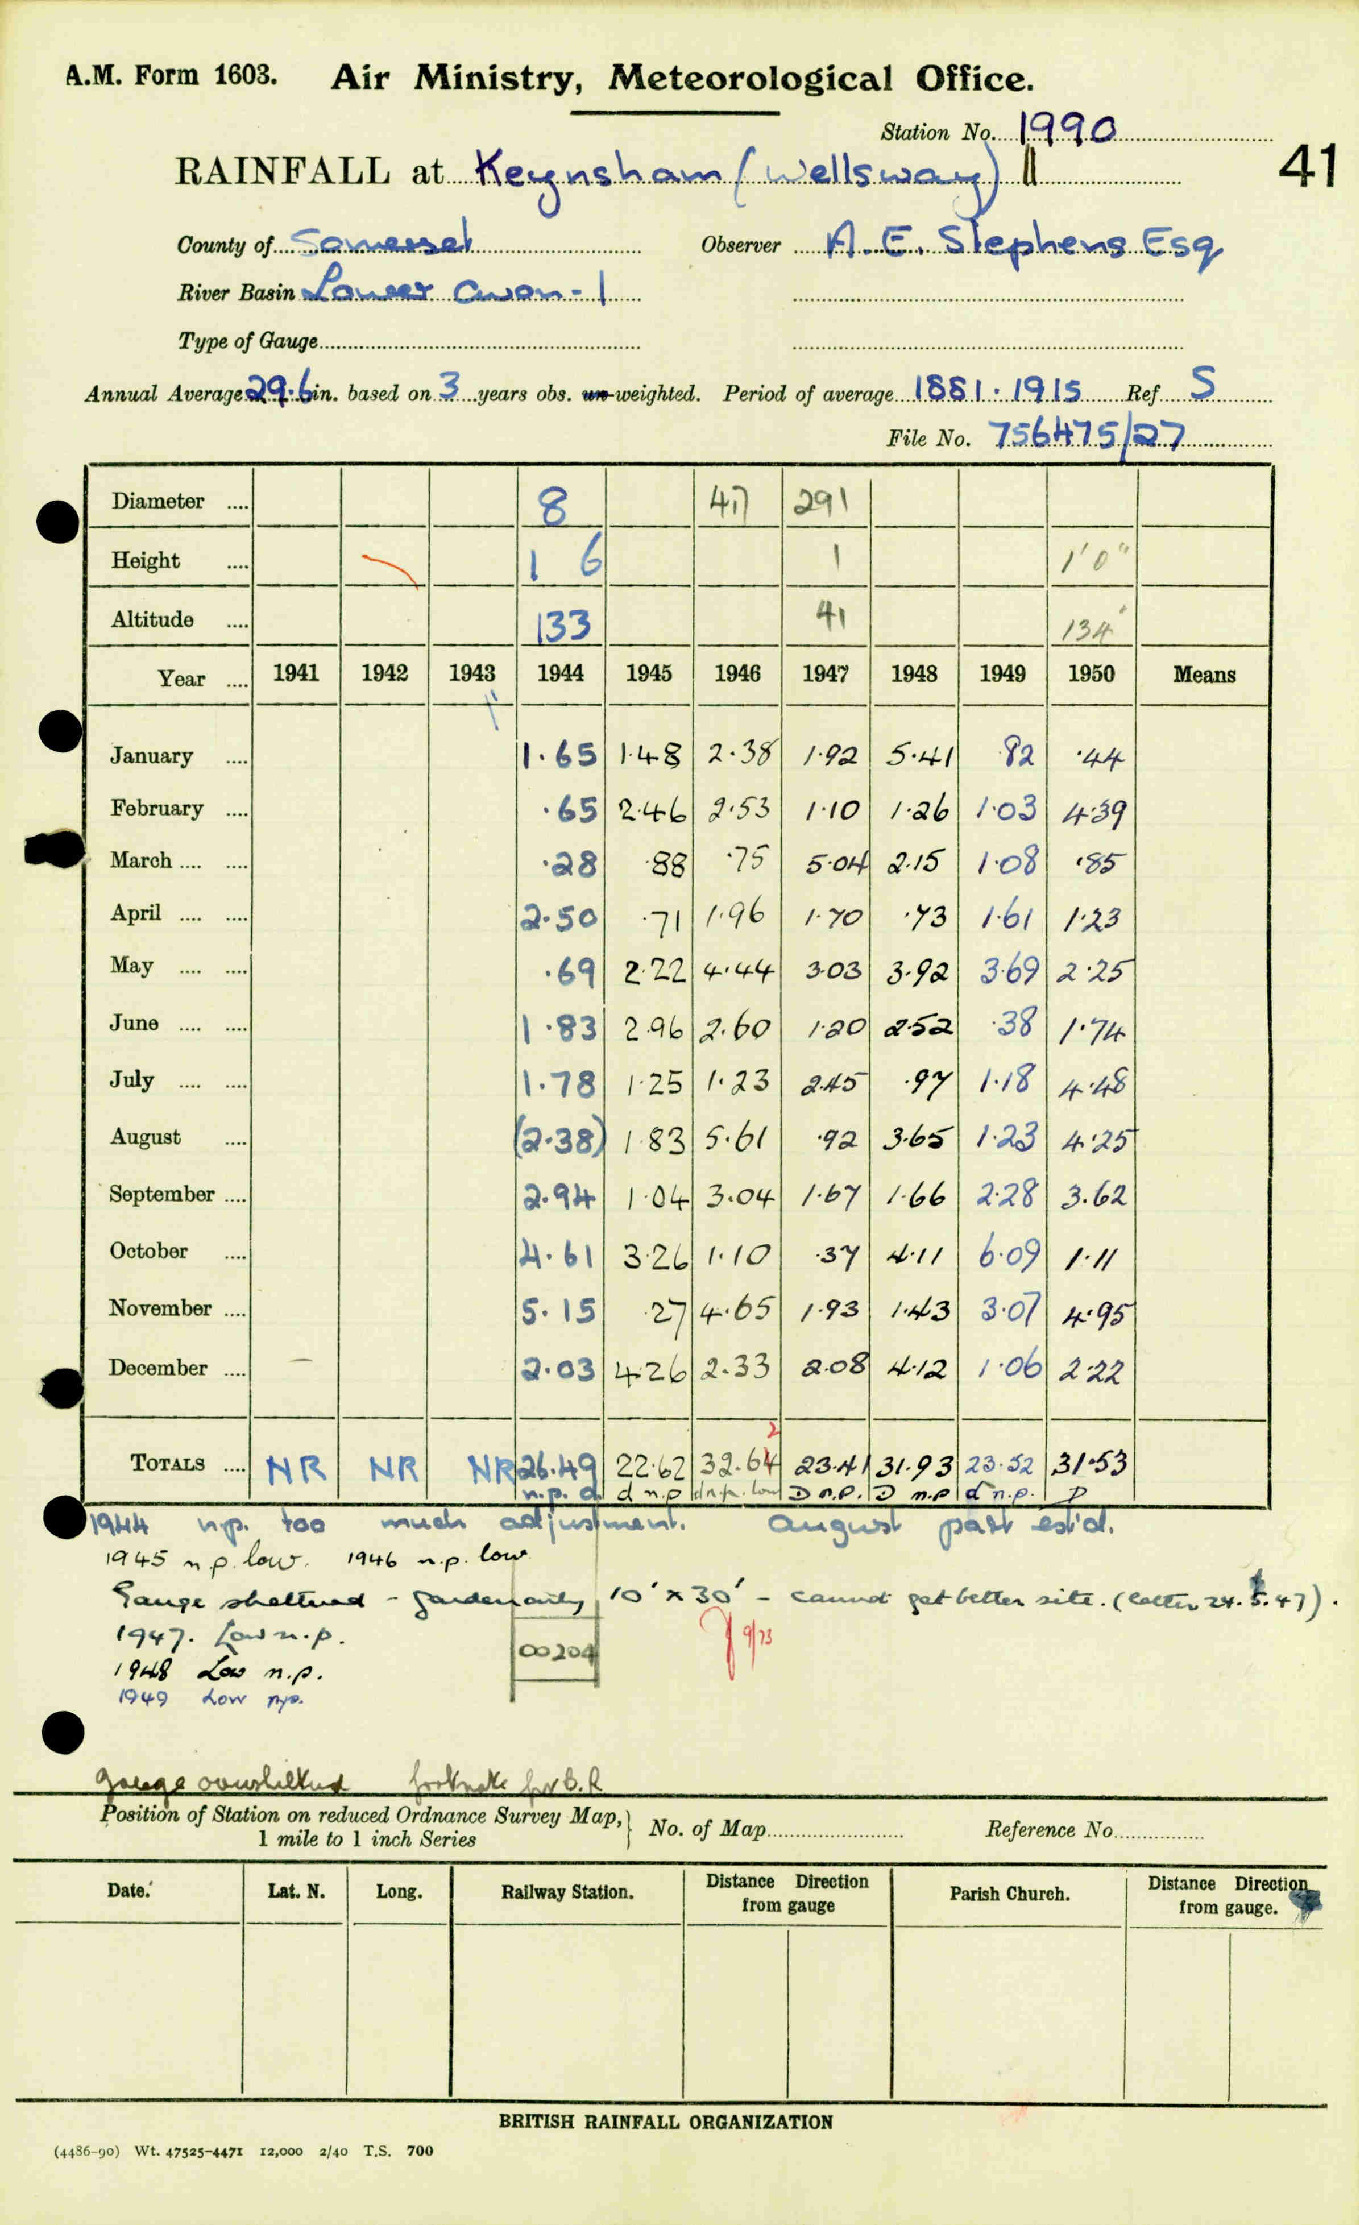 A.M. Form 1603. Air Ministry, Meteorological Office.
Station No. 1990
RAINFALL at Keynsham (Wellsway) 41
County of Somerset Observer A. E. Stephens Esq
River Basin Lower Avon - 1
Type of Gauge
Annual Average 29.6 in. based on 3 years obs. un-weighted. Period of average 1881.1915 Ref. S
File No. 756475/27
Diameter .... 8 47 291
Height .... 1 6 1 1'0"
Altitude .... 133 41 134'
Year .... 1941 1942 1943 1944 1945 1946 1947 1948 1949 1950 Means
January .... 1.65 1.48 2.38 1.92 5.41 .82 .44
February .... .65 2.46 2.53 1.10 1.26 1.03 4.39
March .... .... .28 .88 .75 5.04 2.15 1.08 .85
April .... .... 2.50 .71 1.96 1.70 .73 1.61 1.23
May .... .... .69 2.22 4.44 3.03 3.92 3.69 2.25
June .... .... 1.83 2.96 2.60 1.20 2.52 .38 1.74
July .... .... 1.78 1.25 1.23 2.45 .97 1.18 4.48
August .... (2.38) 1.83 5.61 .92 3.65 1.23 4.25
September .... 2.94 1.04 3.04 1.67 1.66 2.28 3.62
October .... 4.61 3.26 1.10 .37 4.11 6.09 1.11
November .... 5.15 .27 4.65 1.93 1.43 3.07 4.95
December .... – 2.03 4.26 2.33 2.08 4.12 1.06 2.22
2
TOTALS .... NR NR NR 26.49 22.62 32.64 23.41 31.93 23.52 31.53
n.p. d. d n.p d n.p. low D n.p. D n.p d n.p. D
1944 n.p. too much adjustment. August part est'd.
1945 n.p. low. 1946 n.p. low
Gauge sheltered - garden only 10' x 30' - cannot get better site. (letter 24.5.47).
1947. Low n.p. 9/73
00204
1948 Low n.p.
1949 Low n.p.
gauge oversheltered footnote for B.R
Position of Station on reduced Ordnance Survey Map, No. of Map Reference No.
1 mile to 1 inch Series
Date. Lat. N. Long. Railway Station. Distance Direction from gauge Parish Church. Distance Direction from gauge.
BRITISH RAINFALL ORGANIZATION
(4486-90) Wt. 47525-4471 12,000 2/40 T.S. 700